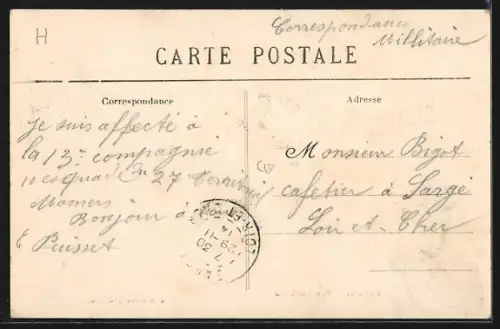 H
Correspondance
Militaire
CARTE POSTALE
Correspondance
Adresse
Je suis affecté à
la 13e compagnie
10 escouade du 27 Territorial
Mamers
Bonjour à
E Puisset
Monsieur Bigot
cafetier à Sargé
Loir et Cher
LOIR-ET-
7 30
29-11
14